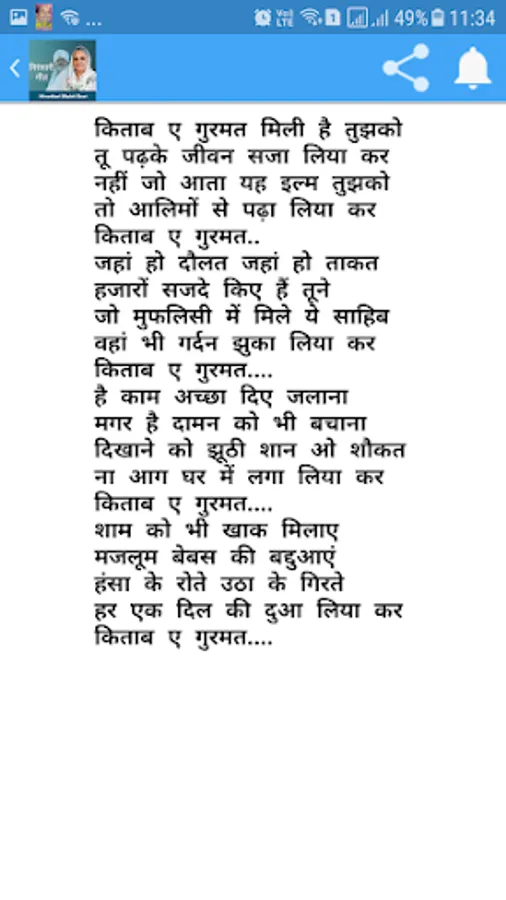 ... 49% 11:34
किताब ए गुरमत मिली है तुझको
तू पढ़के जीवन सजा लिया कर
नहीं जो आता यह इल्म तुझको
तो आलिमों से पढ़ा लिया कर
किताब ए गुरमत..
जहां हो दौलत जहां हो ताकत
हजारों सजदे किए हैं तूने
जो मुफलिसी में मिले ये साहिब
वहां भी गर्दन झुका लिया कर
किताब ए गुरमत....
है काम अच्छा दिए जलाना
मगर है दामन को भी बचाना
दिखाने को झूठी शान ओ शौकत
ना आग घर में लगा लिया कर
किताब ए गुरमत....
शाम को भी खाक मिलाए
मजलूम बेबस की बद्दुआएं
हंसा के रोते उठा के गिरते
हर एक दिल की दुआ लिया कर
किताब ए गुरमत....